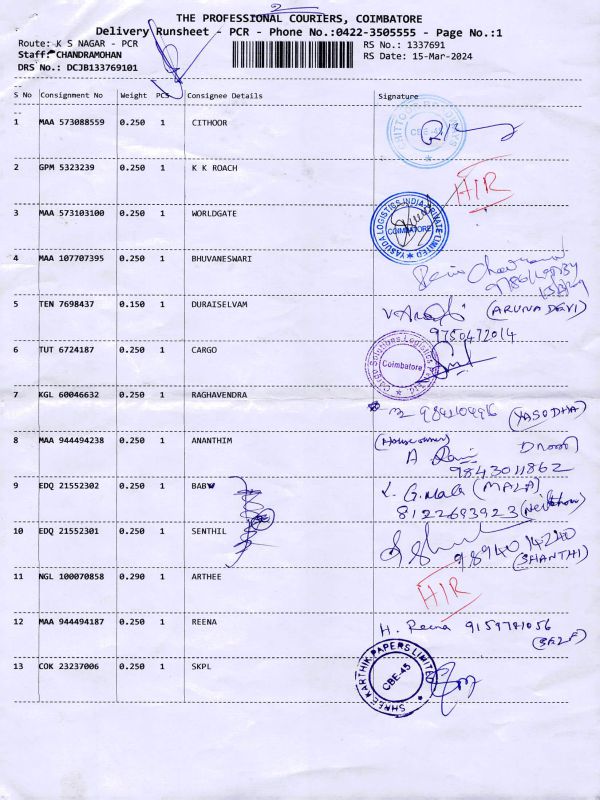 2
THE PROFESSIONAL COURIERS, COIMBATORE
Delivery Runsheet - PCR - Phone No.:0422-3505555 - Page No.:1
Route: K S NAGAR - PCR RS No.: 1337691
Staff: CHANDRAMOHAN RS Date: 15-Mar-2024
DRS No.: DCJB133769101
S No Consignment No Weight PCS Consignee Details Signature
1 MAA 573088559 0.250 1 CITHOOR
CBE-45
2 GPM 5323239 0.250 1 K K ROACH HIR
3 MAA 573103100 0.250 1 WORLDGATE
YASUDA LOGISTICS INDIA PRIVATE LIMITED
COIMBATORE
4 MAA 107707395 0.250 1 BHUVANESWARI
5 TEN 7698437 0.150 1 DURAISELVAM (ARUNA DEVI)
9750472014
6 TUT 6724187 0.250 1 CARGO
Cargo Solutions Logistics
Coimbatore
7 KGL 60046632 0.250 1 RAGHAVENDRA
(YASODHA)
8 MAA 944494238 0.250 1 ANANTHIM (House owner)
9843011862
9 EDQ 21552302 0.250 1 BABU G. Mala (MALA)
8122693923
10 EDQ 21552301 0.250 1 SENTHIL 98940 14240
(SHANTHI)
11 NGL 100070858 0.290 1 ARTHEE HIR
12 MAA 944494187 0.250 1 REENA H. Reena 9159781056
(SELF)
13 COK 23237006 0.250 1 SKPL
SHREE KARTHIK PAPERS LIMITED
CBE-45